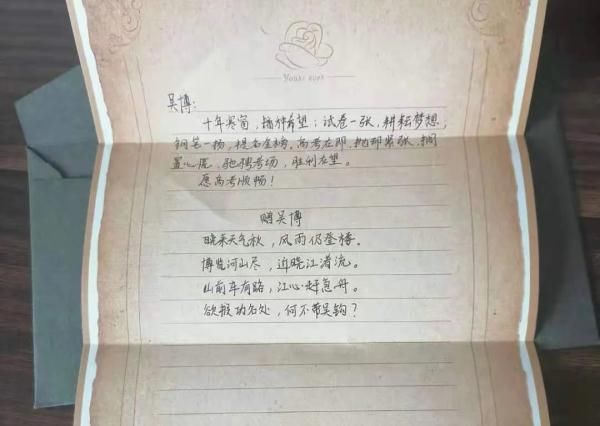 Yours ever
吴博:
十年寒窗,播种希望;试卷一张,耕耘梦想,
钢笔一扬,提名金榜,高考在即,抛却紧张,搁
置心慌,驰骋考场,胜利在望。
愿高考顺畅!
赠吴博
晚来天气秋,风雨仍登楼。
博览河山尽,近晓江渚流。
山前车有路,江心赶急舟。
欲报功名处,何不带吴钩?